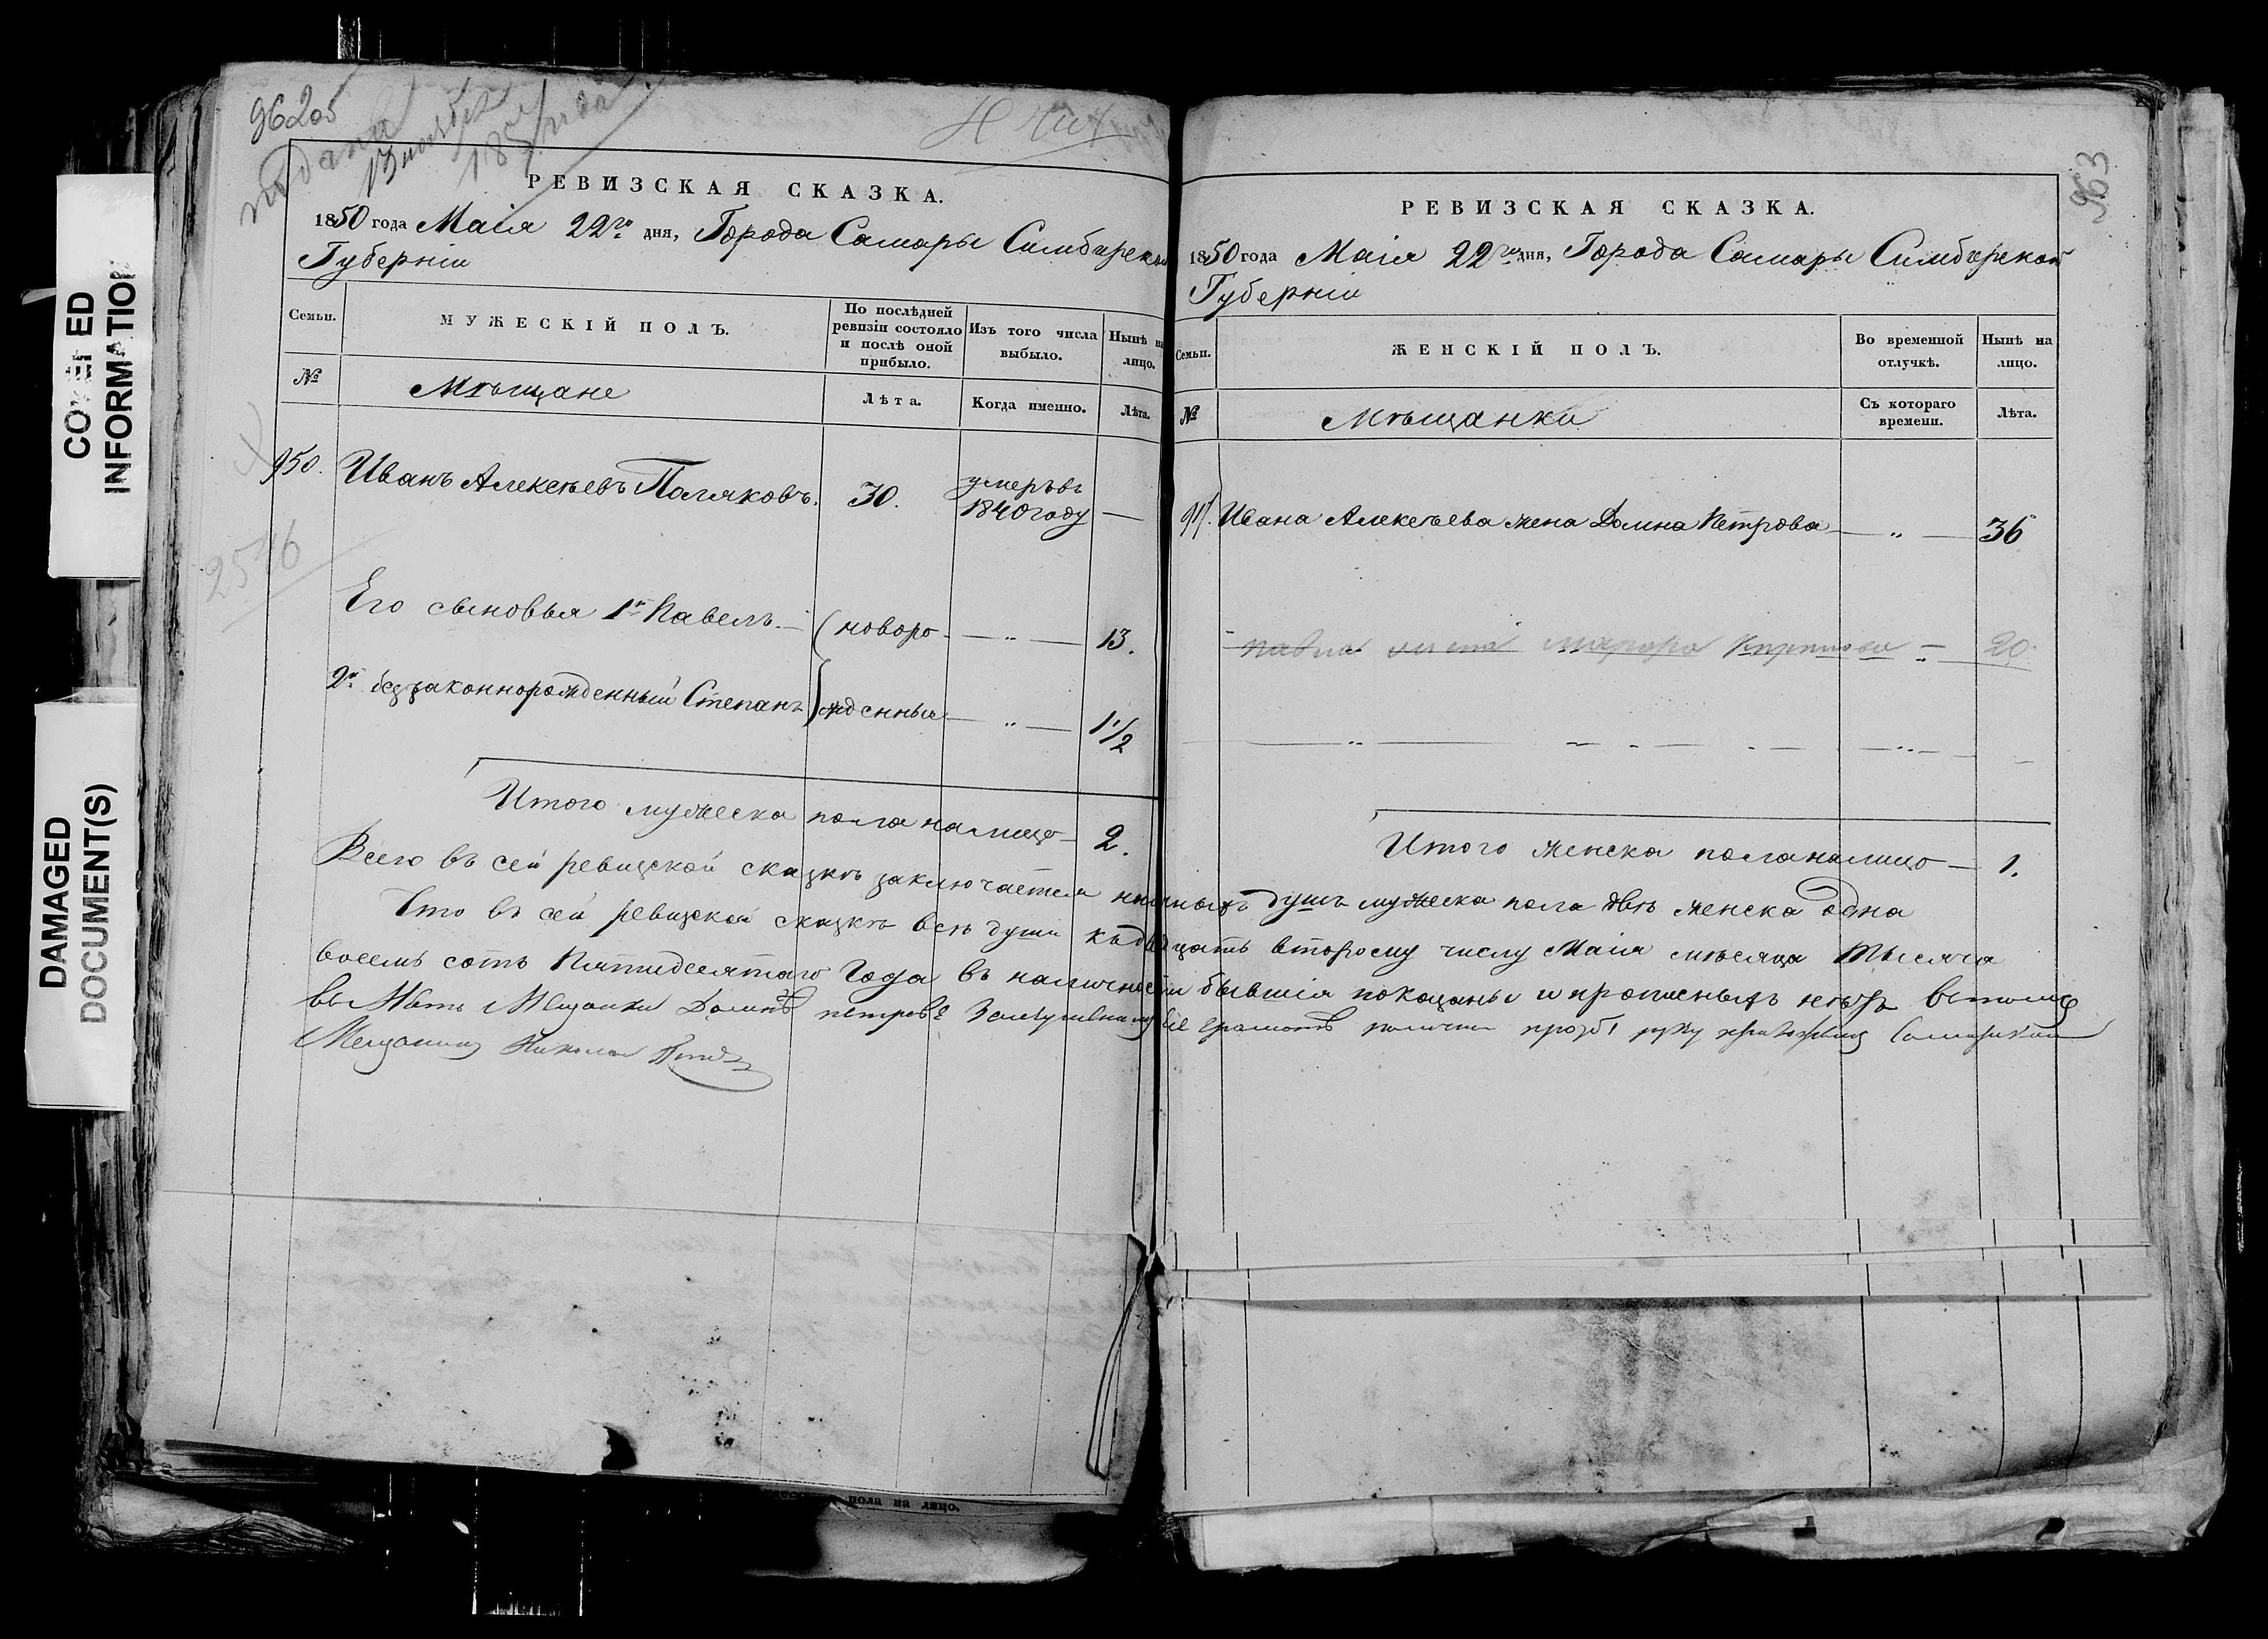 962об
подана
13 ноября
185 года
РЕВИЗСКАЯ СКАЗКА.
1850 года Маія 22го дня, Города Самары Симбирской
Губерніи
Семьи.
МУЖЕСКІЙ ПОЛЪ.
По послѣдней ревизіи состояло и послѣ оной прибыло.
Изъ того числа выбыло.
Нынѣ на лицо.
№
Мѣщане
Лѣта.
Когда именно.
Лѣта.
950. Иванъ Алексѣевъ Поляковъ. 30. умеръ въ 1840 году —
2516
Его сыновья 1й Павелъ — (новоро — „ — 13.
2й беззаконнорожденный Степанъ) жденные — „ — 1 1/2
Итого мужеска пола налицо — 2.
963
РЕВИЗСКАЯ СКАЗКА.
1850 года Маія 22го дня, Города Самары Симбирской
Губерніи
Семьи.
ЖЕНСКІЙ ПОЛЪ.
Во временной отлучкѣ.
Нынѣ на лицо.
№
Мѣщанки
Съ котораго времени.
Лѣта.
Ивана Алексѣева жена Домна Петрова — „ — 36
Павла жена — „ 20.
Итого женска пола налицо — 1.
Всего въ сей ревизской сказкѣ заключается наличныхъ душъ мужеска пола двѣ женска одна
Что въ сей ревизской сказкѣ всѣ души къ двадцать второму числу Маія мѣсяца тысяча
восемь сотъ Пятидесятаго Года въ наличности бывшія показаны и прописныхъ нѣтъ въ томъ
Мещанки Домны Петровой руку приложилъ Самарской
Мещанинъ Николай
DAMAGED
DOCUMENT(S)
INFORMATION
пола на лицо.